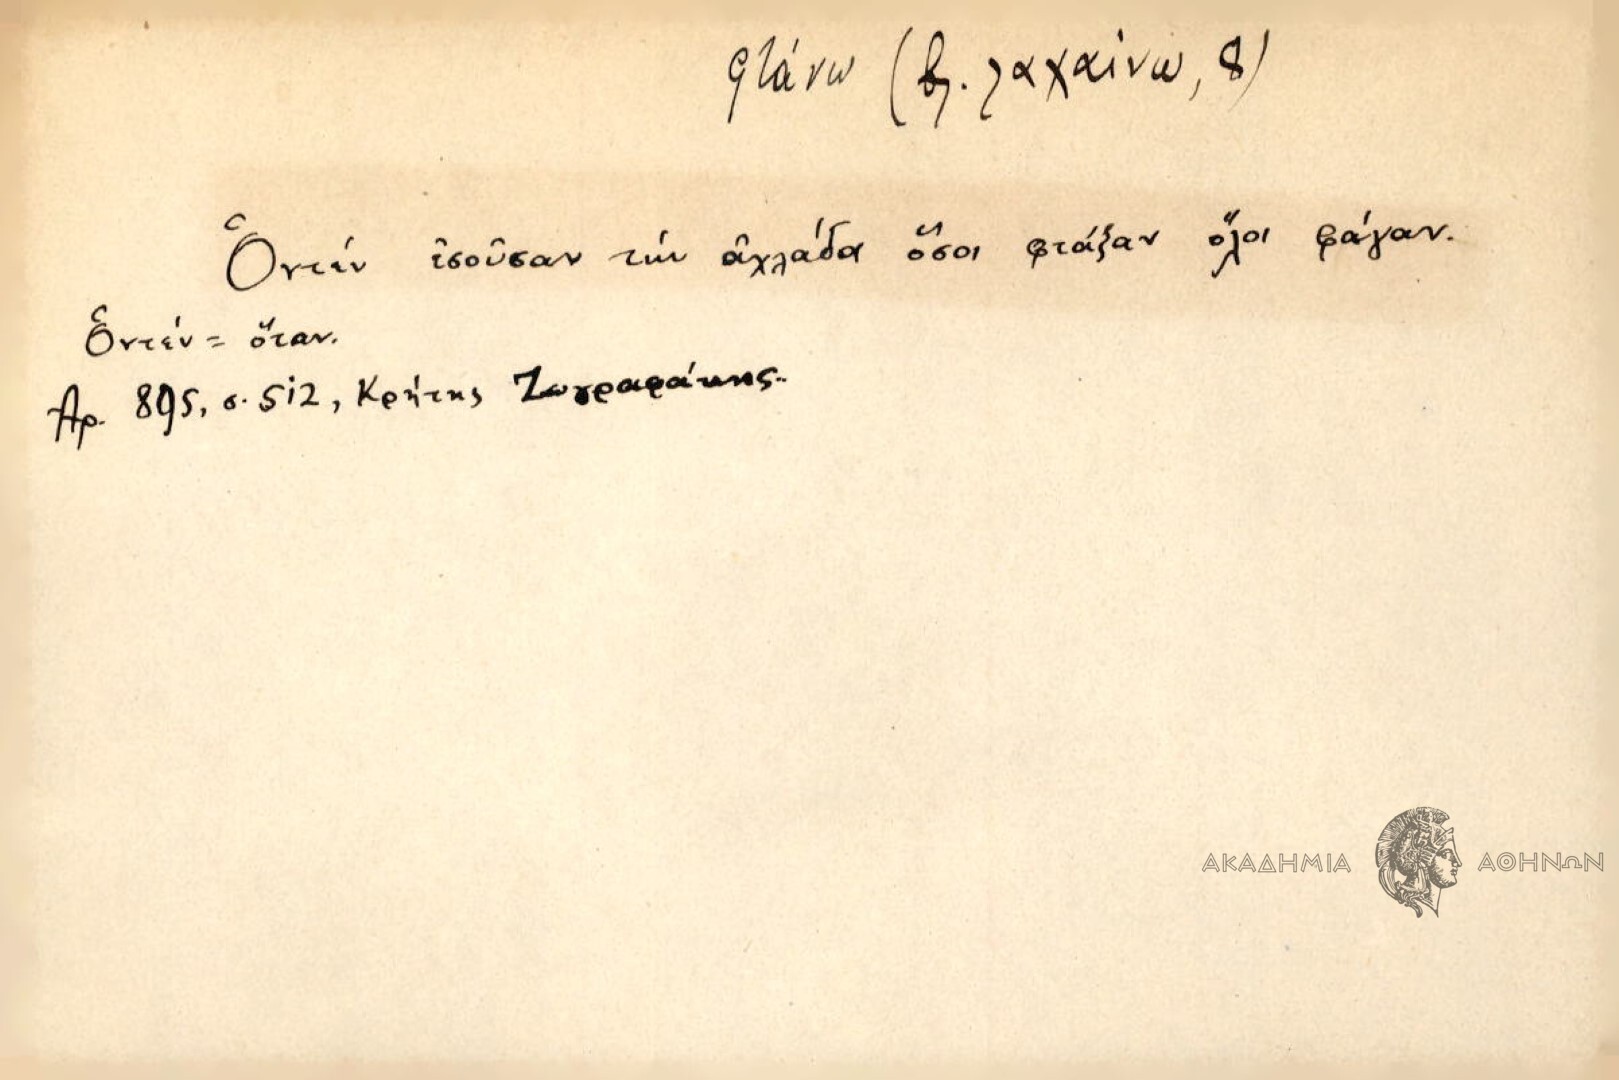 φτάνω (βλ. λαχαίνω, 8)
Ὁντέν ἐσοῦσαν τήν ἀχλάδα ὅσοι φτάξαν ὅλοι φάγαν.
Ὁντέν = ὅταν.
Ἀρ. 895, σ. 512, Κρήτης Ζωγραφάκης.
ΑΚΑΔΗΜΙΑ ΑΘΗΝΩΝ